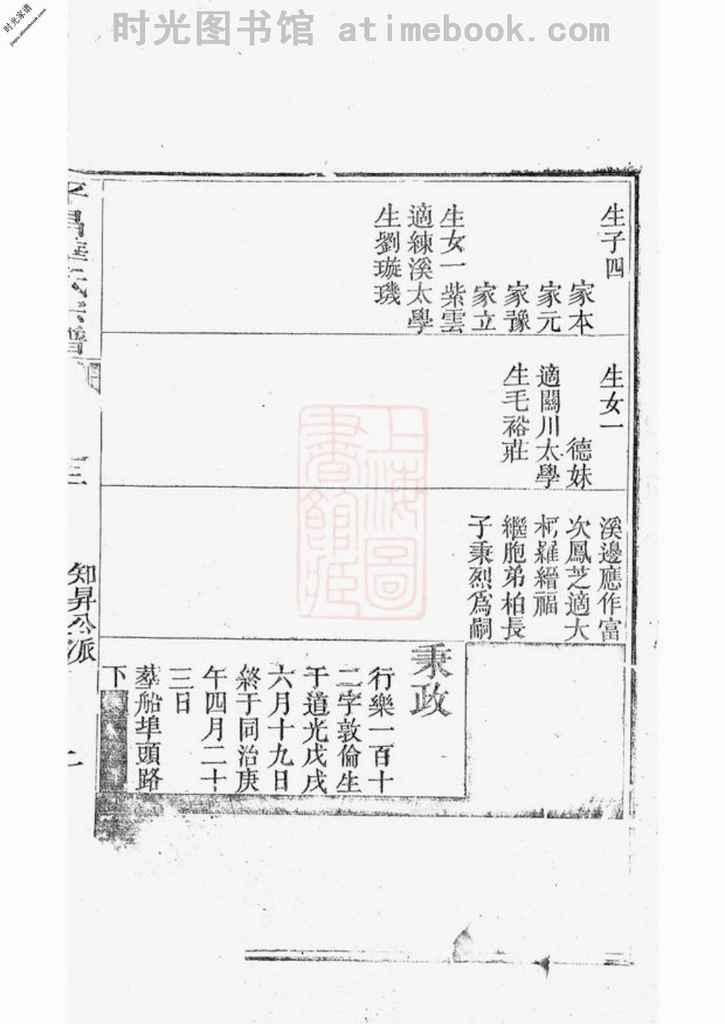 时光图书馆 atimebook.com
时光家谱
生子四
家本
家元
家豫
家立
生女一紫雲
適練溪太學
生劉璇璣
生女一
德妹
適關川太學
生毛裕莊
溪邊應作富
次鳳芝適大
柯羅縉福
繼胞弟柏長
子秉烈為嗣
秉政
行樂一百十
二字敦倫生
于道光戊戌
六月十九日
終于同治庚
午四月二十
三日
墓船埠頭路
下
氏宗譜
三
知昇公派
上海圖書館藏